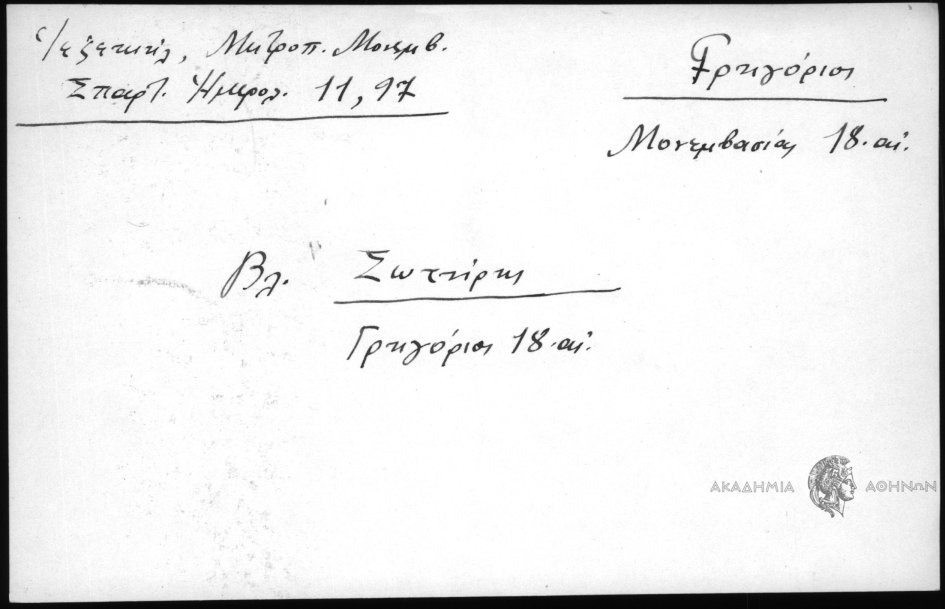 Μητροπ. Μονεμβ.
Σπαρτ. Ημερολ. 11, 97
Γρηγόριος
Μονεμβασίας 18. αἰ.
Βλ. Σωτήρης
Γρηγόριος 18. αἰ.
ΑΚΑΔΗΜΙΑ ΑΘΗΝΩΝ